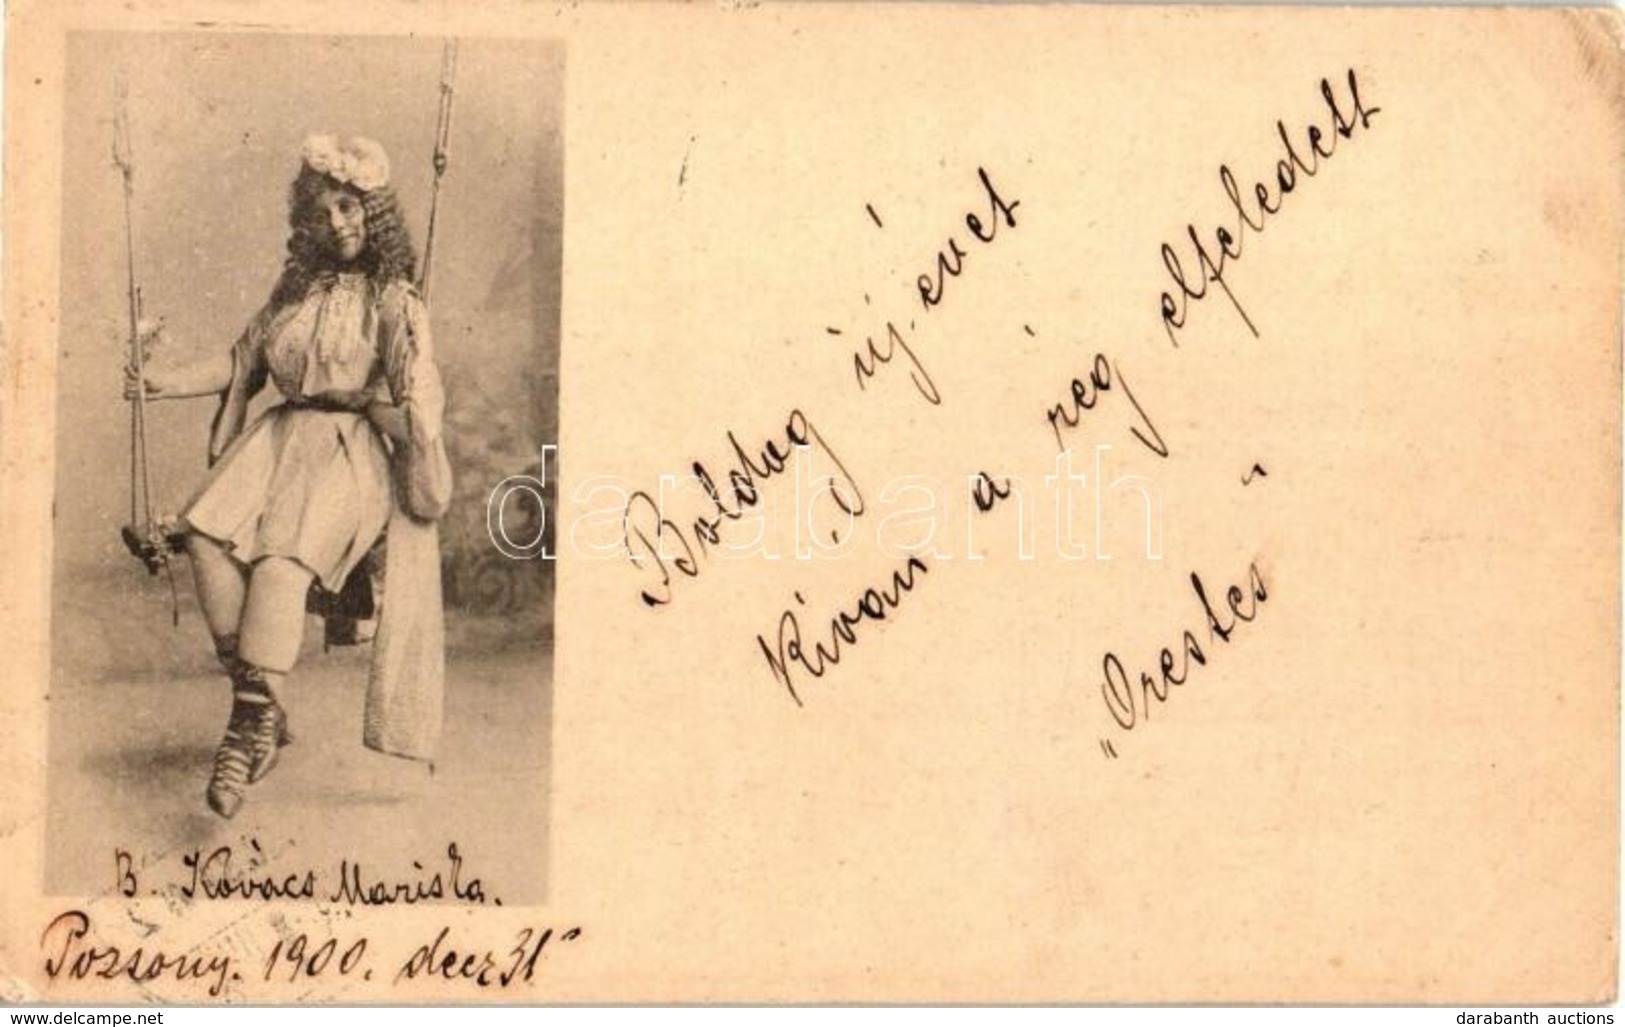 Boldog új évet
Kíván a rég elfeledett
„Orestes"
B. Kovács Mariska.
Pozsony. 1900. decz 31
darabanth
delcampe.net
darabanth auctions